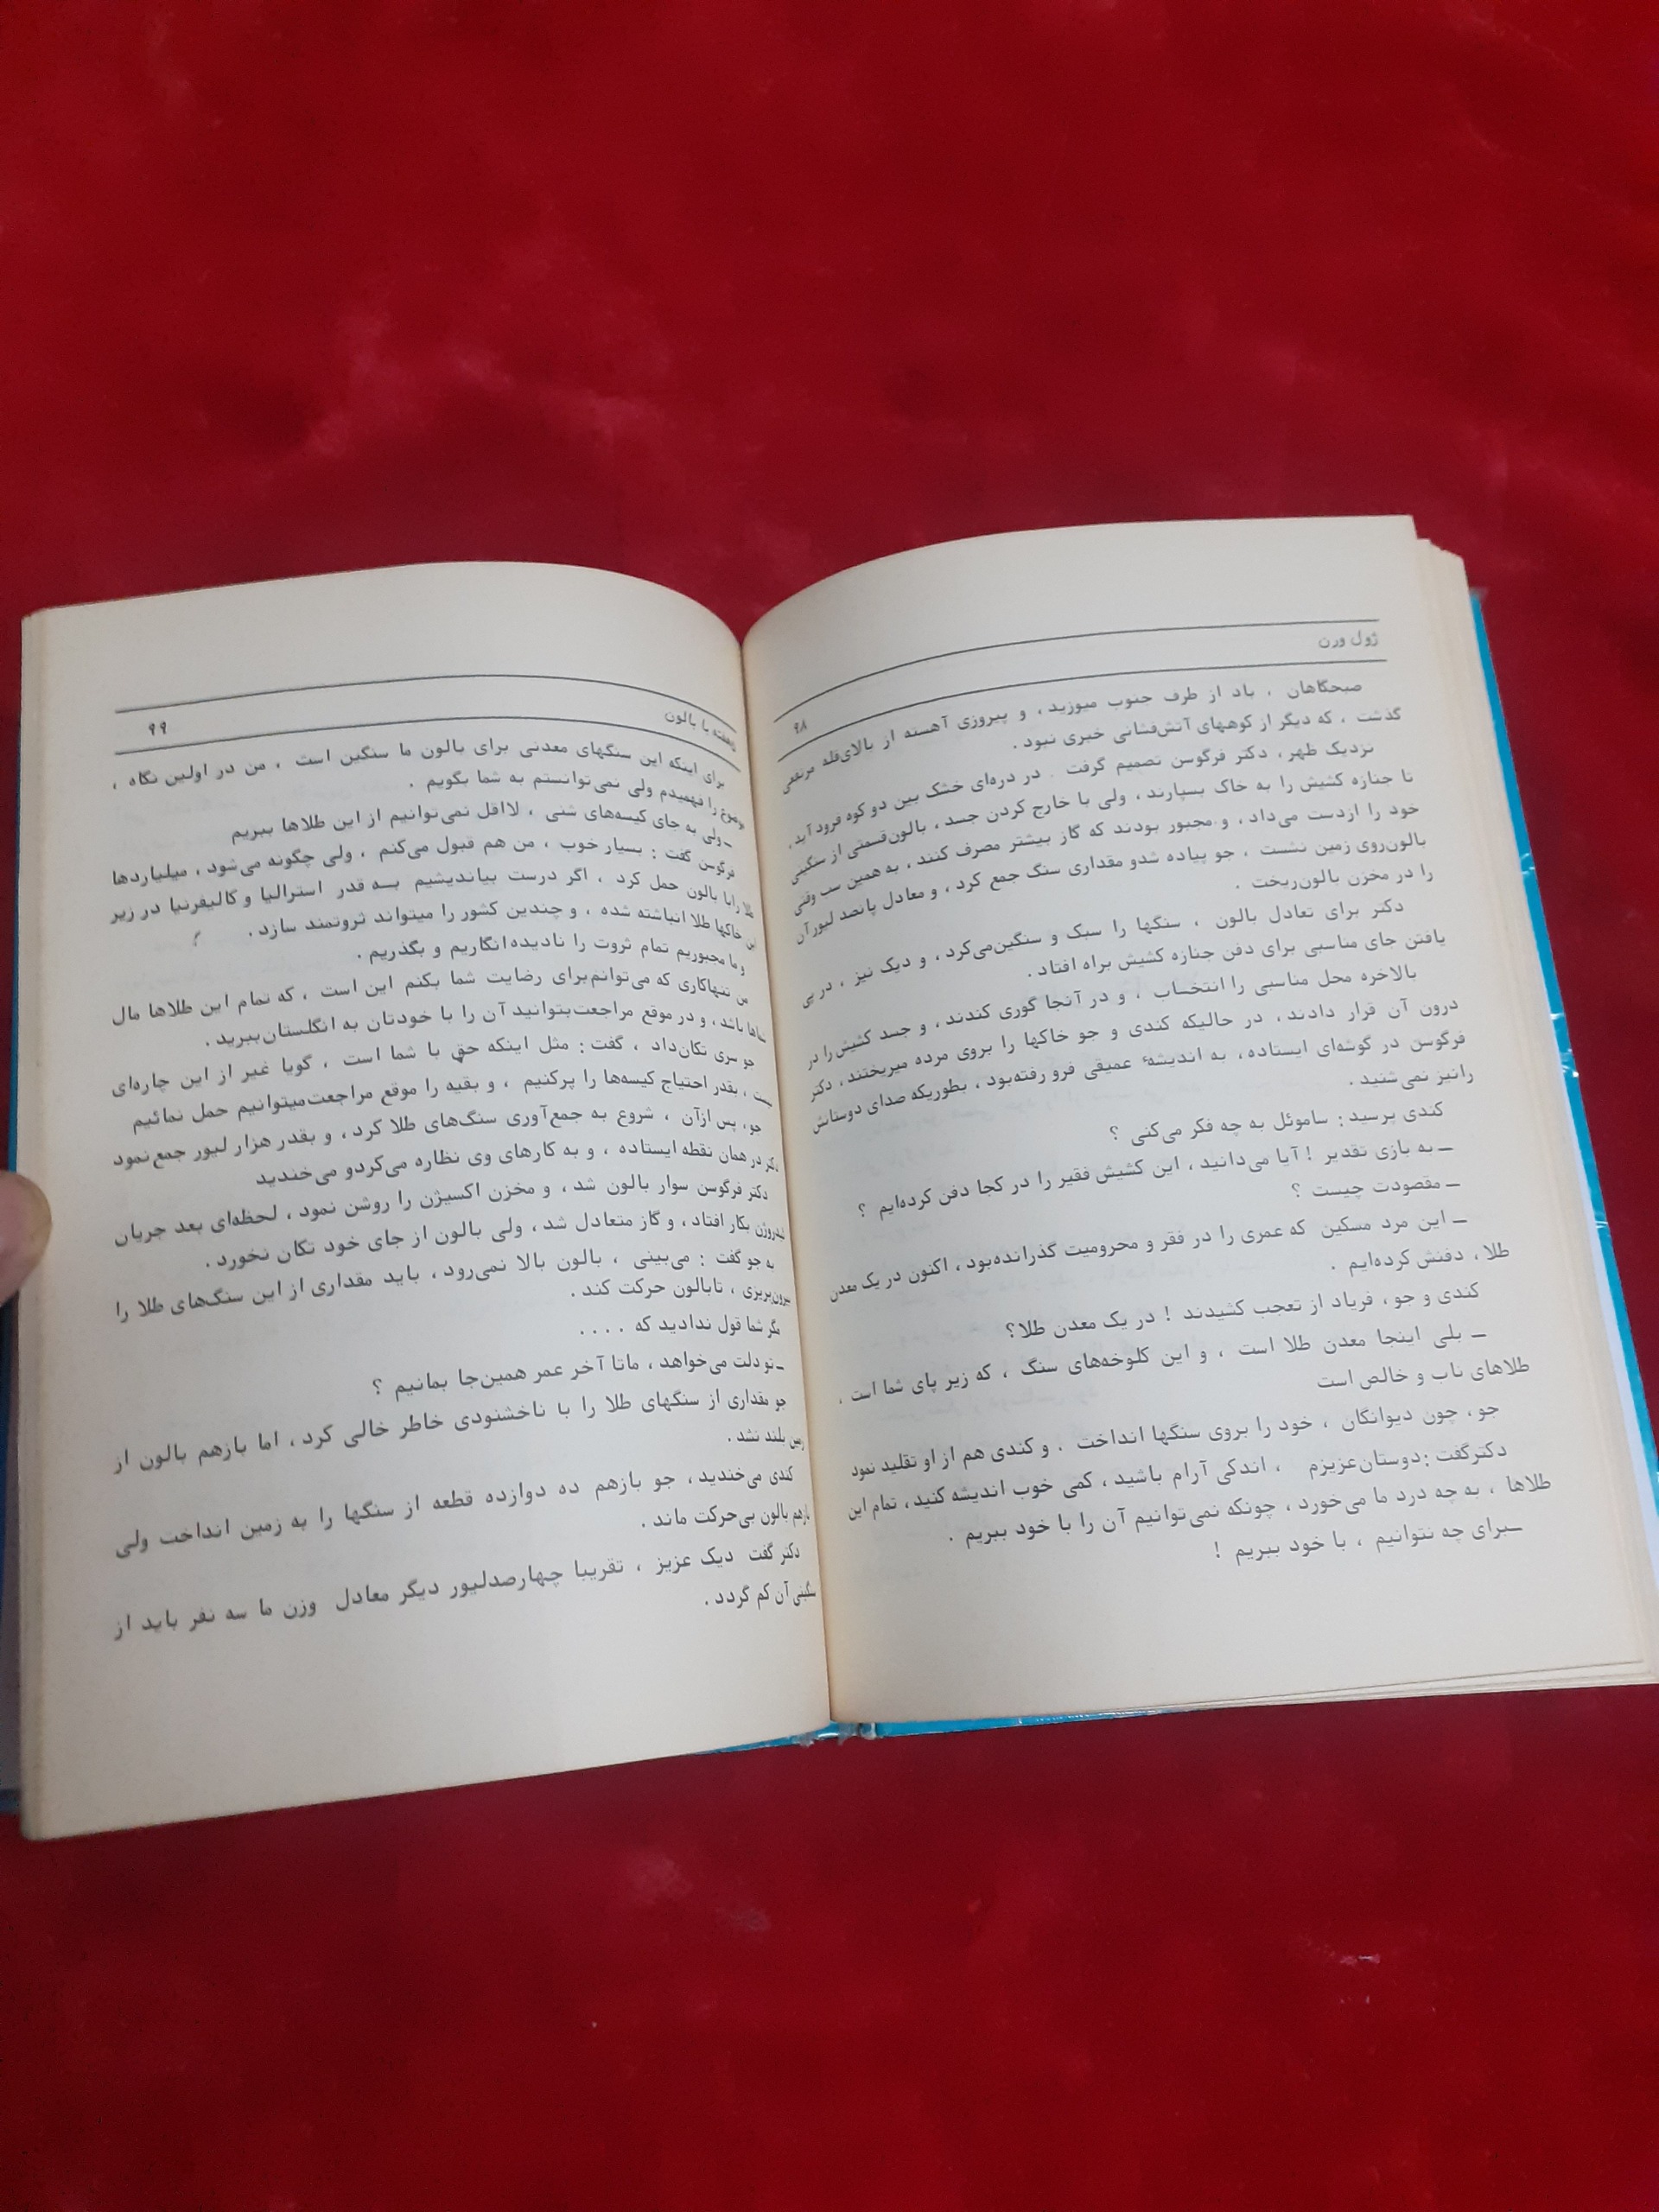 ژول ورن
۹۸
صبحگاهان ، باد از طرف جنوب میوزید ، و پیروزی آهسته از بالای‌قله مرتفعی
گذشت ، که دیگر از کوههای آتش‌فشانی خبری نبود .
نزدیک ظهر ، دکتر فرگوسن تصمیم گرفت در دره‌ای خشک بین دو کوه فرود آید ،
تا جنازه کشیش را به خاک بسپارند ، ولی با خارج کردن جسد ، بالون‌قسمتی از سنگینی
خود را ازدست می‌داد ، و مجبور بودند که گاز بیشتر مصرف کنند ، به همین سبب وقتی
بالون‌روی زمین نشست ، جو پیاده شدو مقداری سنگ جمع کرد ، و معادل پانصد لیورآن
را در مخزن بالون‌ریخت .
دکتر برای تعادل بالون ، سنگها را سبک و سنگین‌می‌کرد ، و دیک نیز ، در پی
یافتن جای مناسبی برای دفن جنازه کشیش براه افتاد .
بالاخره محل مناسبی را انتخاب ، و در آنجا گوری کندند ، و جسد کشیش را در
درون آن قرار دادند ، در حالیکه کندی و جو خاکها را بروی مرده میریختند ، دکتر
فرگوسن در گوشه‌ای ایستاده ، به اندیشهٔ عمیقی فرو رفته‌بود ، بطوریکه صدای دوستاش
رانیز نمی‌شنید .
کندی پرسید : ساموئل به چه فکر می‌کنی ؟
ــ به بازی تقدیر ! آیا می‌دانید ، این کشیش فقیر را در کجا دفن کرده‌ایم ؟
ــ مقصودت چیست ؟
ــ این مرد مسکین که عمری را در فقر و محرومیت گذرانده‌بود ، اکنون در یک معدن
طلا ، دفنش کرده‌ایم .
کندی و جو ، فریاد از تعجب کشیدند ! در یک معدن طلا؟
ــ بلی اینجا معدن طلا است ، و این کلوخه‌های سنگ ، که زیر پای شما است ،
طلاهای ناب و خالص است
جو ، چون دیوانگان ، خود را بروی سنگها انداخت . و کندی هم از او تقلید نمود
دکترگفت : دوستان‌عزیزم ، اندکی آرام باشید ، کمی خوب اندیشه کنید ، تمام این
طلاها ، به چه درد ما می‌خورد ، چونکه نمی‌توانیم آن را با خود ببریم .
ــبرای چه نتوانیم ، با خود ببریم !
با بالون
۹۹
برای اینکه این سنگهای معدنی برای بالون ما سنگین است ، من در اولین نگاه ،
موضوع را فهمیدم ولی نمی‌توانستم به شما بگویم .
ــ ولی به جای کیسه‌های شنی ، لااقل نمی‌توانیم از این طلاها ببریم
فرگوسن گفت : بسیار خوب ، من هم قبول می‌کنم ، ولی چگونه می‌شود ، میلیاردها
طلا رابا بالون حمل کرد ، اگر درست بیاندیشیم بــه قدر استرالیا و کالیفرنیا در زیر
این خاکها طلا انباشته شده ، و چندین کشور را میتواند ثروتمند سازد .
و ما مجبوریم تمام ثروت را نادیده‌انگاریم و بگذریم .
من تنهاکاری که می‌توانم‌برای رضایت شما بکنم این است ، که تمام این طلاها مال
شماها باشد ، و در موقع مراجعت‌بتوانید آن را با خودتان به انگلستان‌ببرید .
جو سری تکان‌داد ، گفت : مثل اینکه حق با شما است ، گویا غیر از این چاره‌ای
نیست ، بقدر احتیاج کیسه‌ها را پرکنیم ، و بقیه را موقع مراجعت‌میتوانیم حمل نمائیم
جو ، پس ازآن ، شروع به جمع‌آوری سنگ‌های طلا کرد ، و بقدر هزار لیور جمع‌نمود
دکتر در همان نقطه ایستاده ، و به کارهای وی نظاره می‌کردو می‌خندید
دکتر فرگوسن سوار بالون شد ، و مخزن اکسیژن را روشن نمود ، لحظه‌ای بعد جریان
ئیدروژن بکار افتاد ، و گاز متعادل شد ، ولی بالون از جای خود تکان نخورد .
به جو گفت : می‌بینی ، بالون بالا نمی‌رود ، باید مقداری از این سنگ‌های طلا را
بیرون‌بریزی ، تابالون حرکت کند .
مگر شما قول ندادید که . . . .
ــ تو دلت می‌خواهد ، ماتا آخر عمر همین‌جا بمانیم ؟
جو مقداری از سنگهای طلا را با ناخشنودی خاطر خالی کرد ، اما بازهم بالون از
زمین بلند نشد .
کندی می‌خندید ، جو بازهم ده دوازده قطعه از سنگها را به زمین انداخت ولی
بازهم بالون بی‌حرکت ماند .
دکتر گفت دیک عزیز ، تقریبا چهارصدلیور دیگر معادل وزن ما سه نفر باید از
سنگینی آن کم گردد .